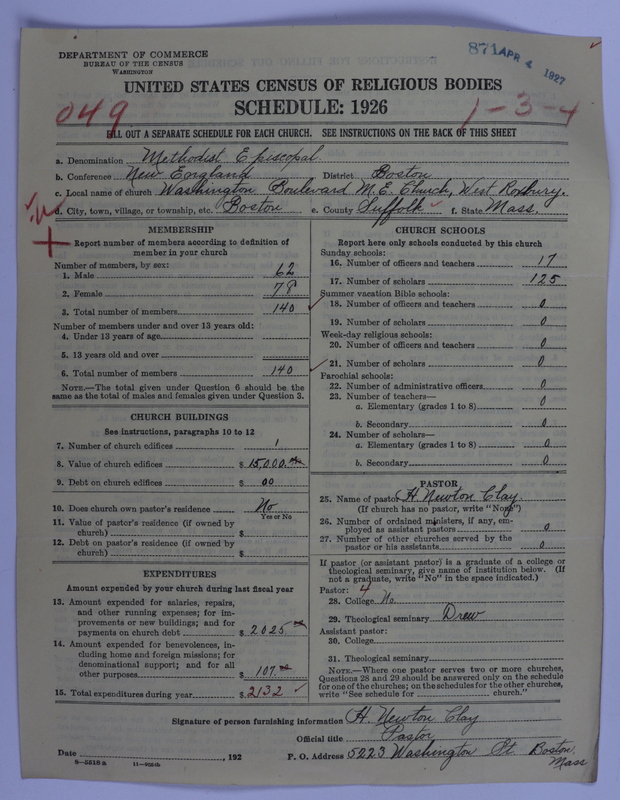 DEPARTMENT OF COMMERCE
BUREAU OF THE CENSUS
WASHINGTON
871 APR 4 1927
UNITED STATES CENSUS OF RELIGIOUS BODIES
SCHEDULE: 1926
049
1-3-4
FILL OUT A SEPARATE SCHEDULE FOR EACH CHURCH. SEE INSTRUCTIONS ON THE BACK OF THIS SHEET
a. Denomination Methodist Episcopal
b. Conference New England District Boston
c. Local name of church Washington Boulevard M.E. Church, West Roxbury.
d. City, town, village, or township, etc. Boston e. County Suffolk f. State Mass.
MEMBERSHIP
Report number of members according to definition of
member in your church
Number of members, by sex:
1. Male 62
2. Female 78
3. Total number of members 140
Number of members under and over 13 years old:
4. Under 13 years of age
5. 13 years old and over
6. Total number of members 140
NOTE.—The total given under Question 6 should be the
same as the total of males and females given under Question 3.
CHURCH BUILDINGS
See instructions, paragraphs 10 to 12
7. Number of church edifices 1
8. Value of church edifices $ 15,000.
9. Debt on church edifices $ 00
10. Does church own pastor's residence No
Yes or No
11. Value of pastor's residence (if owned by
church) $
12. Debt on pastor's residence (if owned by
church) $
EXPENDITURES
Amount expended by your church during last fiscal year
13. Amount expended for salaries, repairs,
and other running expenses; for im-
provements or new buildings; and for
payments on church debt $ 2025
14. Amount expended for benevolences, in-
cluding home and foreign missions; for
denominational support; and for all
other purposes $ 107.
15. Total expenditures during year $ 2132
CHURCH SCHOOLS
Report here only schools conducted by this church
Sunday schools:
16. Number of officers and teachers 17
17. Number of scholars 125
Summer vacation Bible schools:
18. Number of officers and teachers 0
19. Number of scholars 0
Week-day religious schools:
20. Number of officers and teachers 0
21. Number of scholars 0
Parochial schools:
22. Number of administrative officers 0
23. Number of teachers—
a. Elementary (grades 1 to 8) 0
b. Secondary 0
24. Number of scholars—
a. Elementary (grades 1 to 8) 0
b. Secondary 0
PASTOR
25. Name of pastor H. Newton Clay.
(If church has no pastor, write "None")
26. Number of ordained ministers, if any, em-
ployed as assistant pastors 0
27. Number of other churches served by the
pastor or his assistants 0
If pastor (or assistant pastor) is a graduate of a college or
theological seminary, give name of institution below. (If
not a graduate, write "No" in the space indicated.)
Pastor: 4
28. College No.
29. Theological seminary Drew
Assistant pastor:
30. College
31. Theological seminary
NOTE.—Where one pastor serves two or more churches,
Questions 28 and 29 should be answered only on the schedule
for one of the churches; on the schedules for the other churches,
write "See schedule for church."
Signature of person furnishing information H. Newton Clay
Official title Pastor
Date , 192 P. O. Address 5223 Washington St. Boston.
Mass
8-5518a 11-9